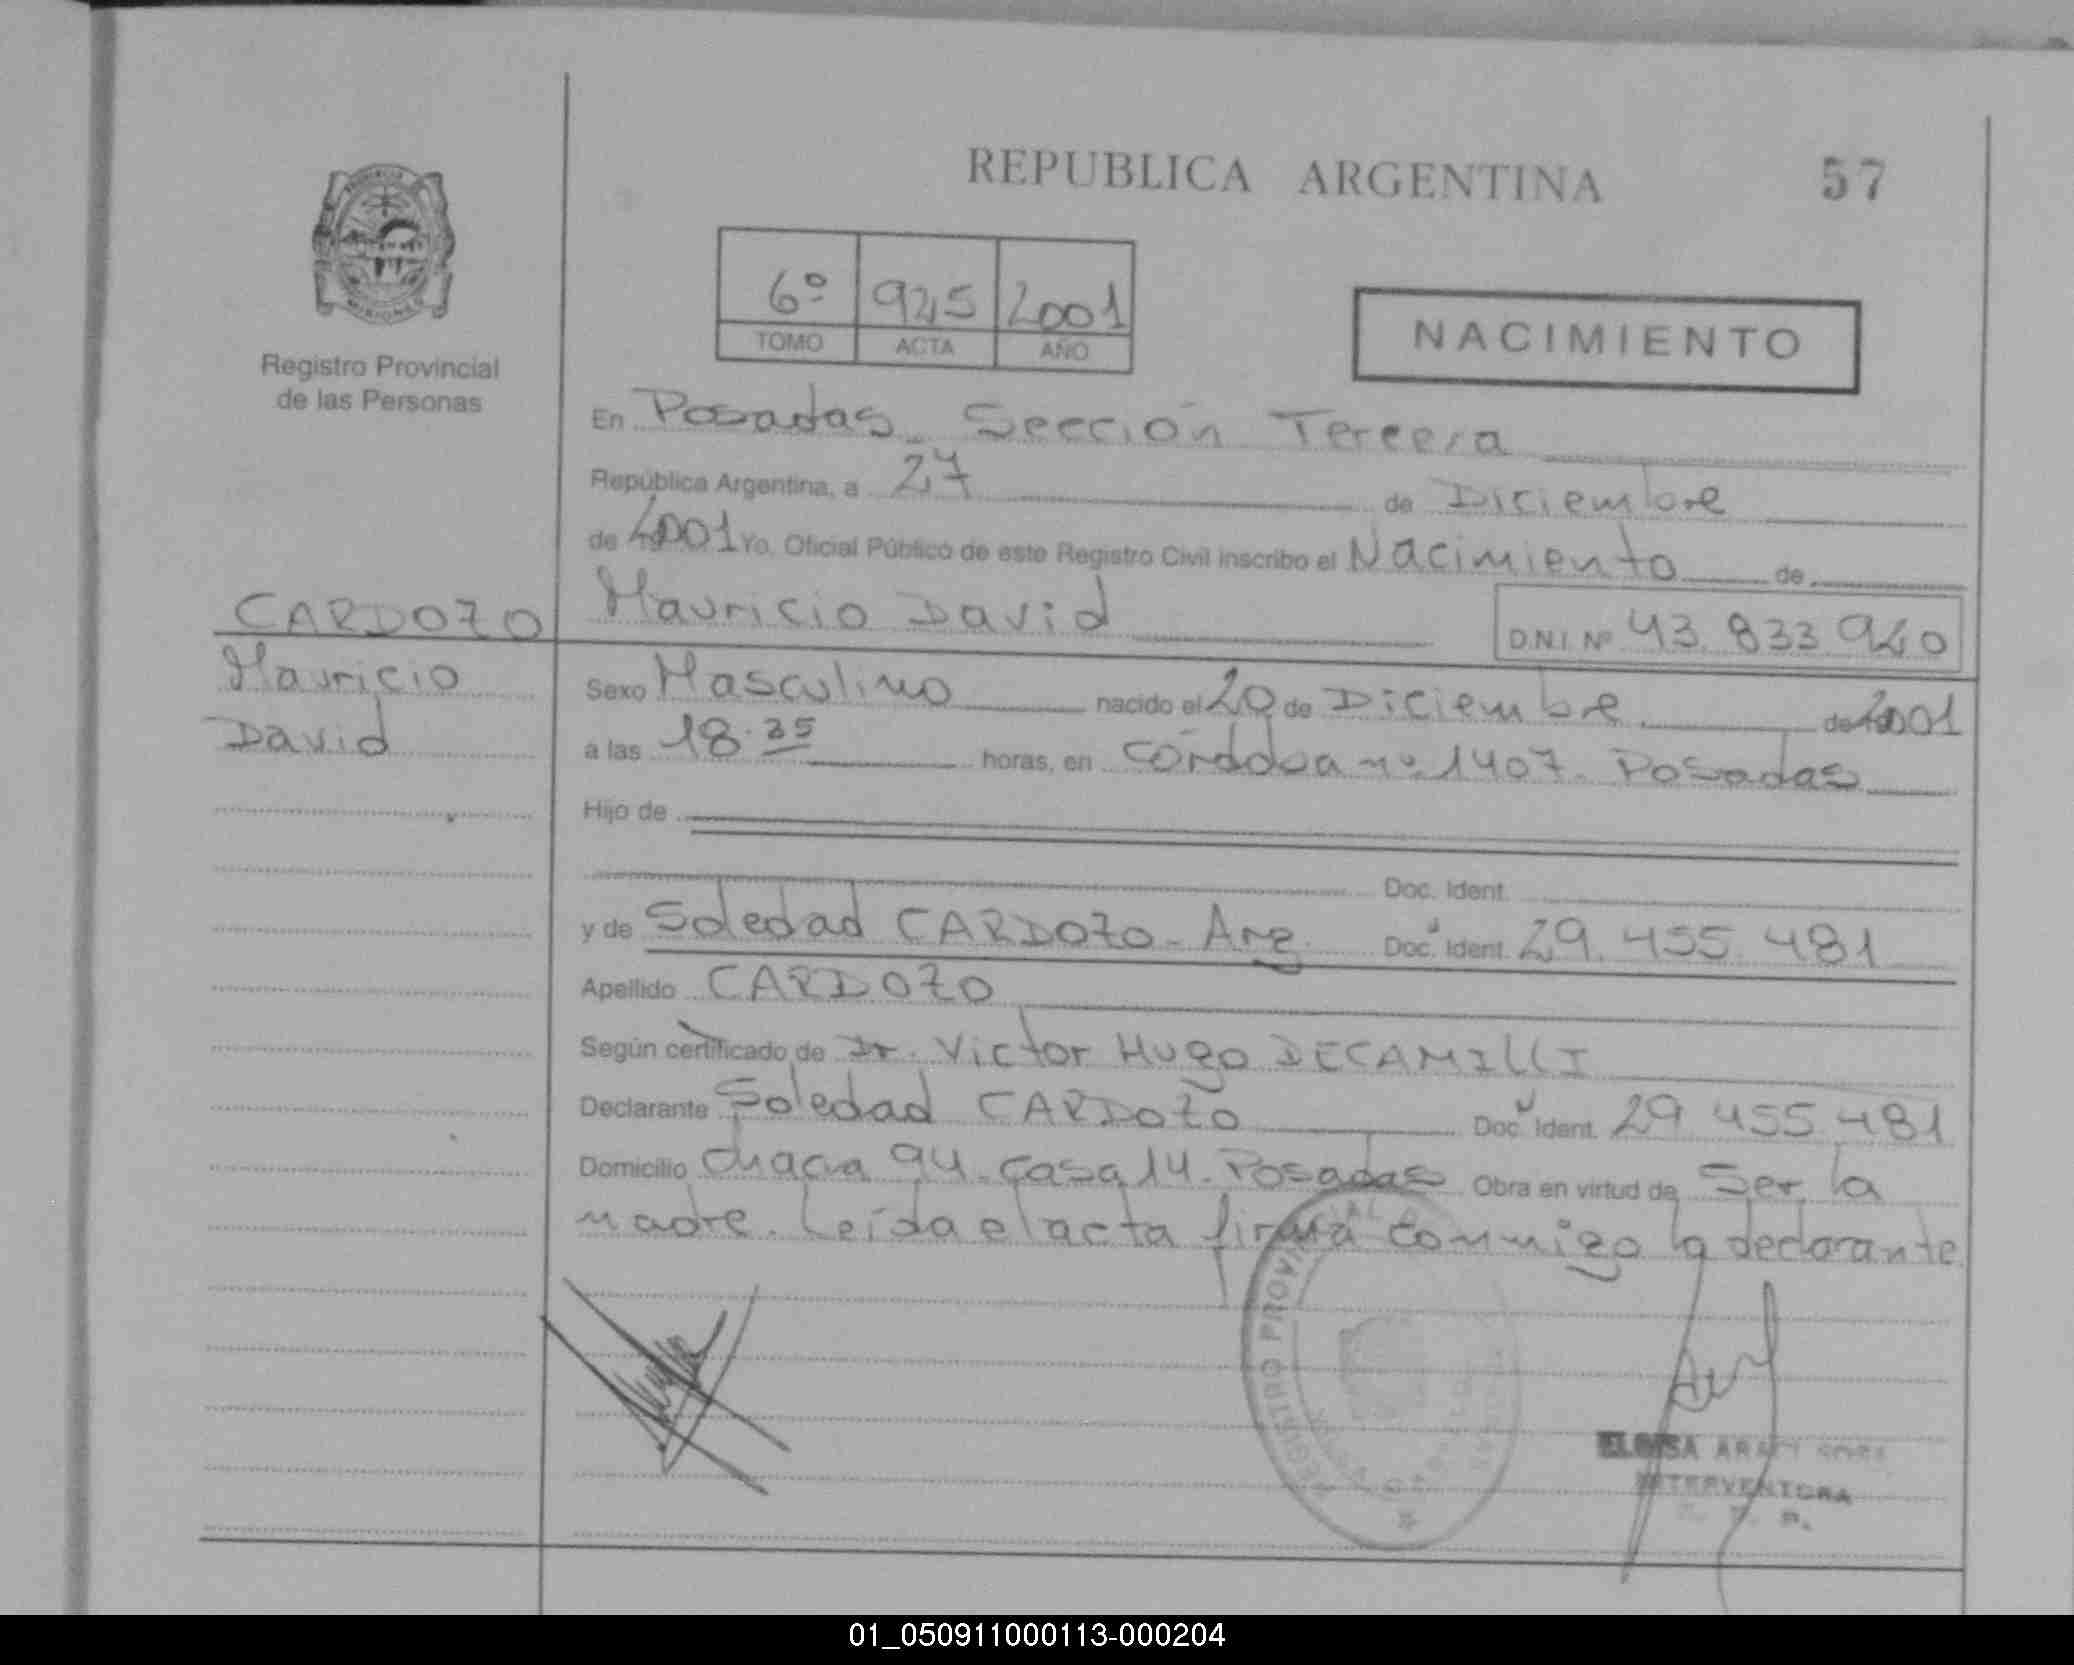 REPUBLICA ARGENTINA 57
6º 925 2001
TOMO ACTA AÑO
NACIMIENTO
Registro Provincial
de las Personas
En Posadas Sección Tercera
República Argentina, a 27 de Diciembre
de 2001 Yo, Oficial Público de este Registro Civil inscribo el Nacimiento de
CARDOZO
Mauricio
David
Mauricio David D.N.I. Nº 43.833.940
Sexo Masculino nacido el 20 de Diciembre de 2001
a las 18.35 horas, en córdoba nº 1407. Posadas
Hijo de
Doc. Ident.
y de Soledad CARDOZO - Arg. Doc. Ident. 29.455.481
Apellido CARDOZO
Según certificado de Dr. Victor Hugo DECAMILLI
Declarante Soledad CARDOZO Doc. Ident. 29.455.481
Domicilio chacra 94. casa 14. Posadas Obra en virtud de Ser la
madre. Leída el acta firma conmigo la declarante
REGISTRO PROVINCIAL
ELOISA
INTERVENTORA
01_050911000113-000204